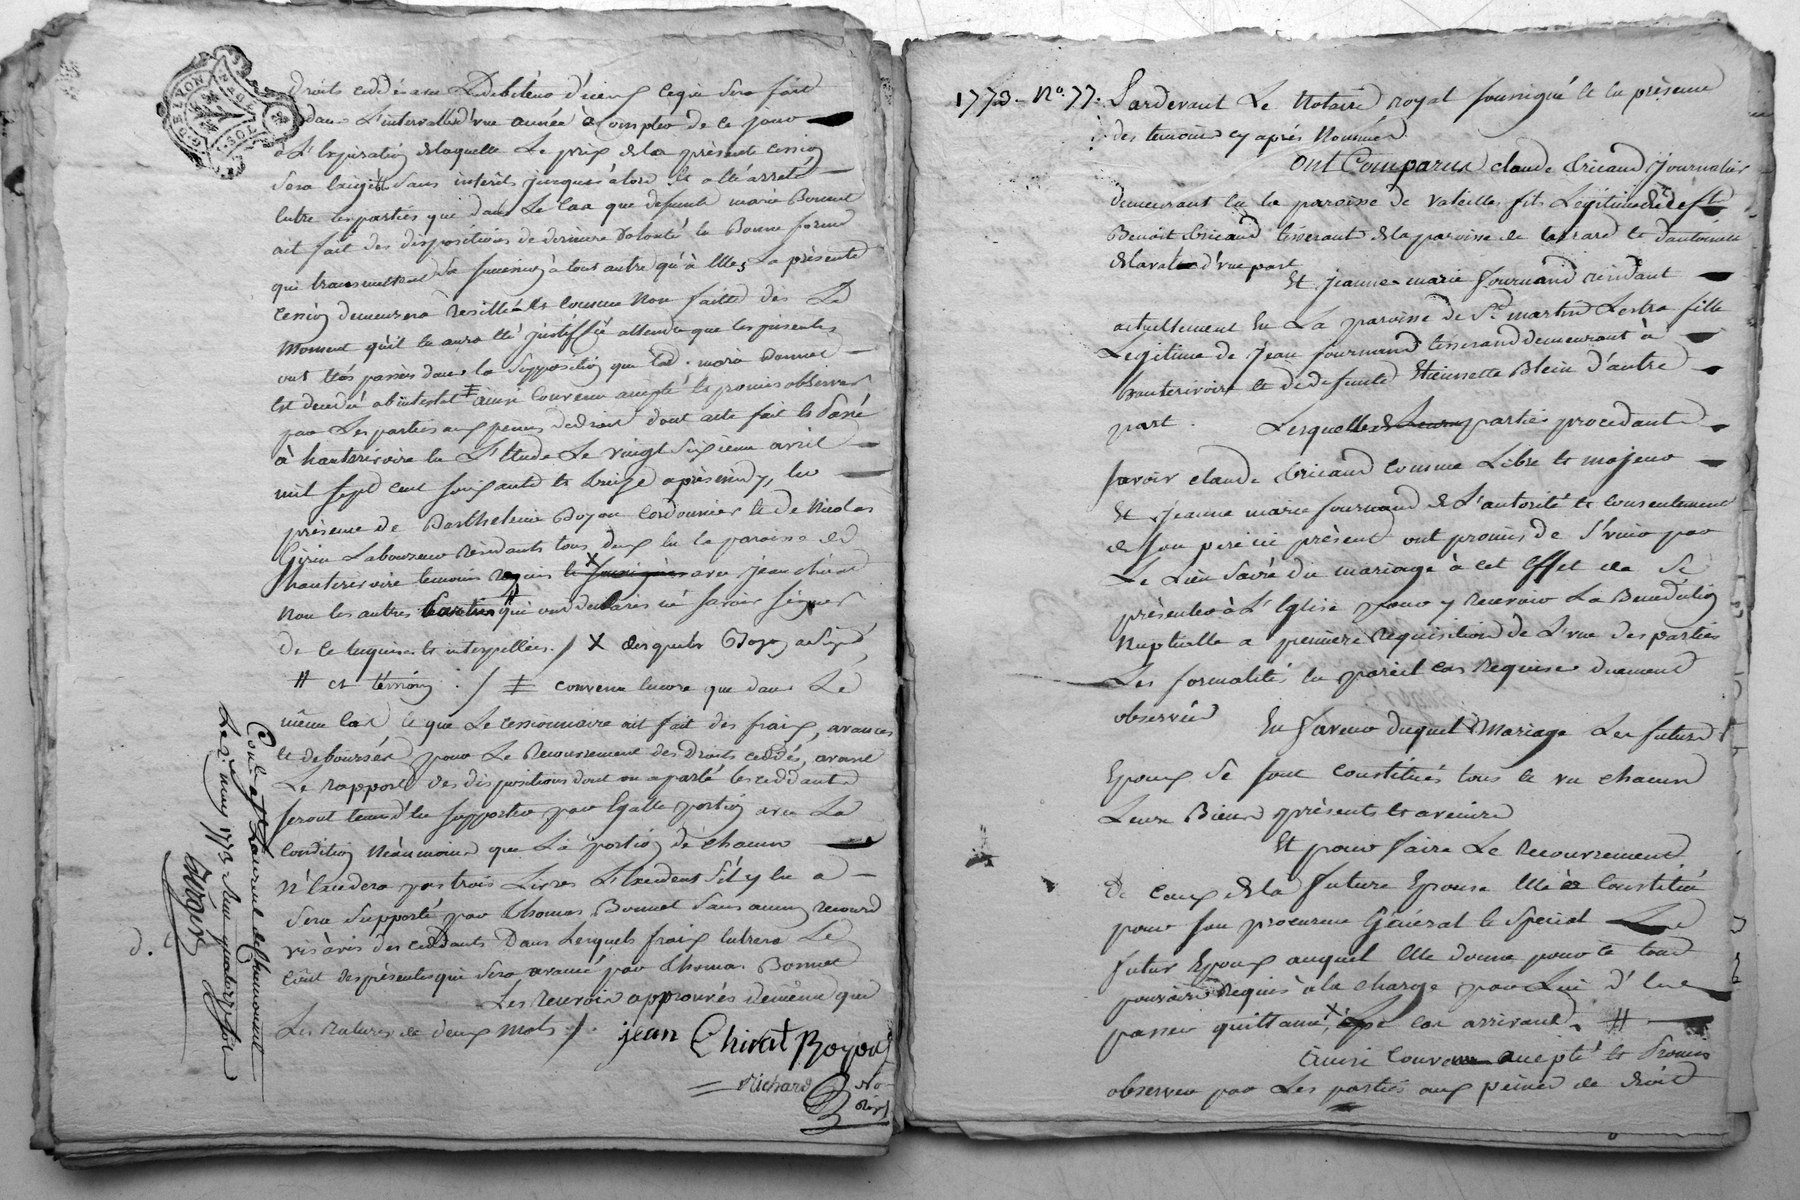 droits ceddés avec Ledebiteur d'iceux ce qui sera fait
dans L'intervalle d'une année a Compter de ce jour
a L'Expiration de laquelle Le prix de la présente cession
sera Exigé sans interets jusques alors Et a été arrêté
Entre les parties que dans Le Cas que defunte marie Bonnet
ait fait des dispositions de derniere volonté En Bonne forme
qui transmettent Sa succession à tout autre qu'à Elles La présente
Cession demeurera Resilliée Et comme non faitte dès Le
Moment qu'il En aura été justiffié attendu que les présentes
ont Etés passées dans la supposition que lad. marie Bonnet
Est decedée abintestat ‡ ainsi Convenu accepté Et promis observer
par Les parties aux peines de droit dont acte fait Et Passé
à hauterivoire En L'Etude Le vingt Sixieme avril
mil sept cent soixante Et treize après midy, En
présence de Barthelemie Boyou Cordonnier Et de Nicolas
Girin Laboureur Résidants tous deux En la paroisse de
hauterivoire temoins Requis X avec jean chirat
Non les autres parties # qui ont declarés ne savoir signer
de ce Enquises Et interpellées. / X desquels Boyou a signé
# et témoin . / ‡ convenu Encore que dans Le
même Cas où que Le cessionnaire ait fait des fraix, avances
et deboursés pour Le Recouvrement des Droits ceddés, avant
Le rapport des dispositions dont on a parlé les ceddants
seront tenus d'En supporter par Egalle portion avec La
Condition Néanmoins que La portion de chacun
N'Excedera pas trois Livres L'Excedent S'il y En a
Sera Supporté par Thomas Bonnet Sans aucun recours
vis à vis des ceddants Dans Lesquels fraix Entrera Le
Coût des présentes qui sera avancé par Thomas Bonnet
Les Renvois approuvés de même que
Les Ratures de deux mots. /.
jean Chirat Boyou
Richard No
Re
Conl. a St. Laurent de Chamousset
Le 2. may 1773. Reçu quatorze sols
1773. No. 77. Pardevant Le Notaire royal soussigné Et En présence
des temoins cy après Nommés
Ont Comparus claude Ericaud journalier
demeurant En la paroisse de Valeilles fils Légitime de deft.
Benoit Ericaud tisserant de la paroisse de
d'une part
Et jeanne-marie fournand résidant
actuellement En La paroisse de St. martin Lestra fille
Legitime de jean fournand tisserand demeurant à
hauterivoire Et de defunte Etiennette Blein d'autre
part. Lesquelles parties procedants
savoir claude Ericaud comme Libre Et majeur
Et jeanne marie fournand de L'autorité Et consentement
de son pere ici présent ont promis de S'unir par
Le Lien Sacré du mariage à cet Effet de Se
présenter à L'Eglise pour y recevoir La Benediction
Nuptialle a premiere Requisition de L'une des parties
Les formalités En pareil cas Requises duement
observées En faveur duquel Mariage Les futurs
Epoux Se sont constitués tous Et un chacun
Leurs Biens présents Et avenirs
Et pour faire Le Recouvrement
de Ceux de la future Epouse Elle a constitué
pour son procureur Général Et Special Le
futur Epoux auquel Elle donne pour ce tout
pouvoir Requis à la charge par Lui d'En
passer quittance, X Le cas arrivant. #
Ainsi convenu accepté Et Promis
observer par Les parties aux peines de droit